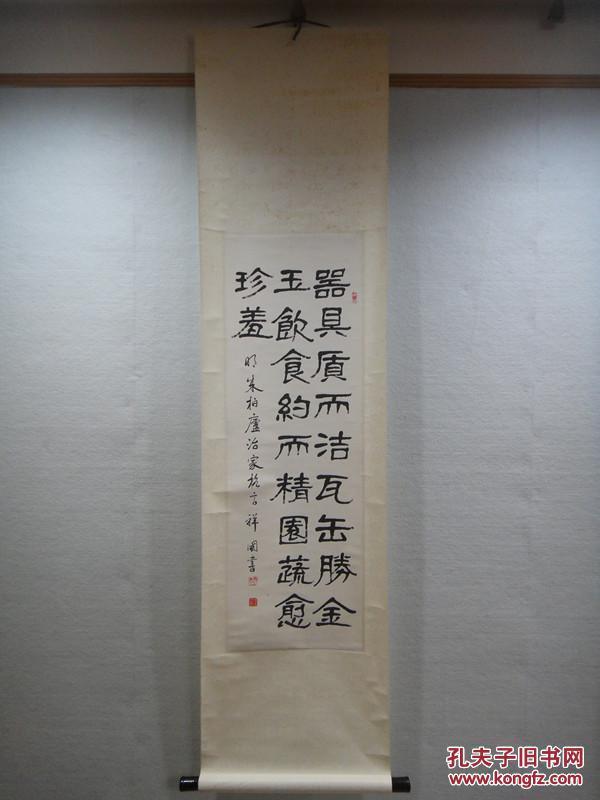 器具质而洁瓦缶勝金
玉飲食約而精園蔬愈
珍羞
明朱柏廬治家格言祥國書
孔夫子旧书网
www.kongfz.com